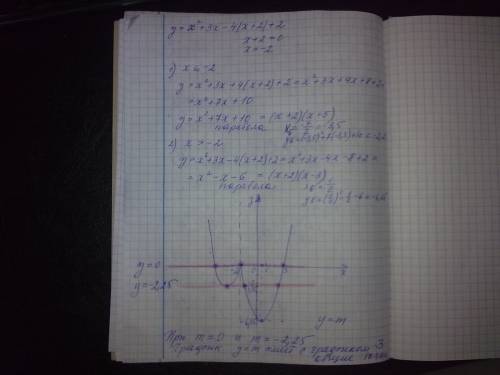 y = x² + 3x - 4|x+2| + 2
x + 2 = 0
x = -2
1) x < -2
y = x² + 3x + 4(x+2) + 2 = x² + 3x + 4x + 8 + 2 =
= x² + 7x + 10
y = x² + 7x + 10 = (x+2)(x+5)
парабола
2) x ≥ -2
y = x² + 3x - 4(x+2) + 2 = x² + 3x - 4x - 8 + 2 =
= x² - x - 6 = (x+2)(x-3)
парабола
y
y=0
x
y=-2,25
y=m
При m=0 и m=-2,25
График y=m имеет с графиком 3
общие точки